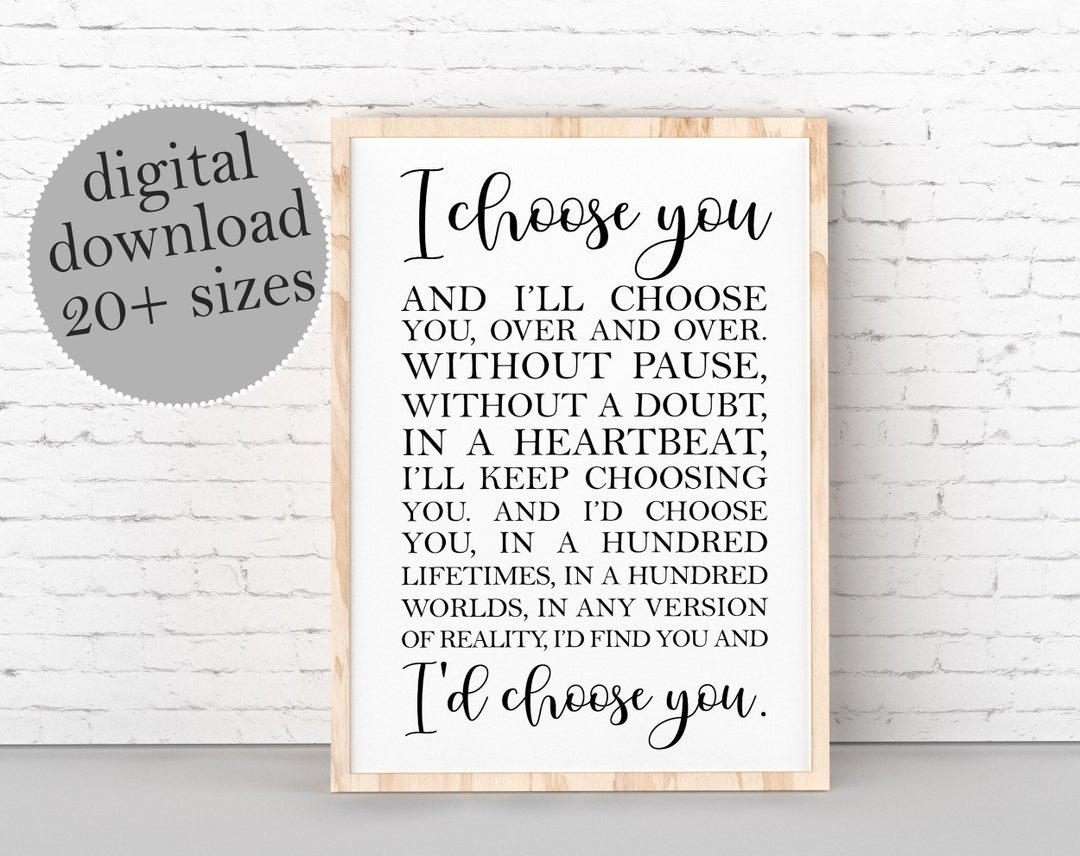 digital
download
20+ sizes
I choose you
AND I'LL CHOOSE
YOU, OVER AND OVER.
WITHOUT PAUSE,
WITHOUT A DOUBT,
IN A HEARTBEAT,
I'LL KEEP CHOOSING
YOU. AND I'D CHOOSE
YOU, IN A HUNDRED
LIFETIMES, IN A HUNDRED
WORLDS, IN ANY VERSION
OF REALITY, I'D FIND YOU AND
I'd choose you.